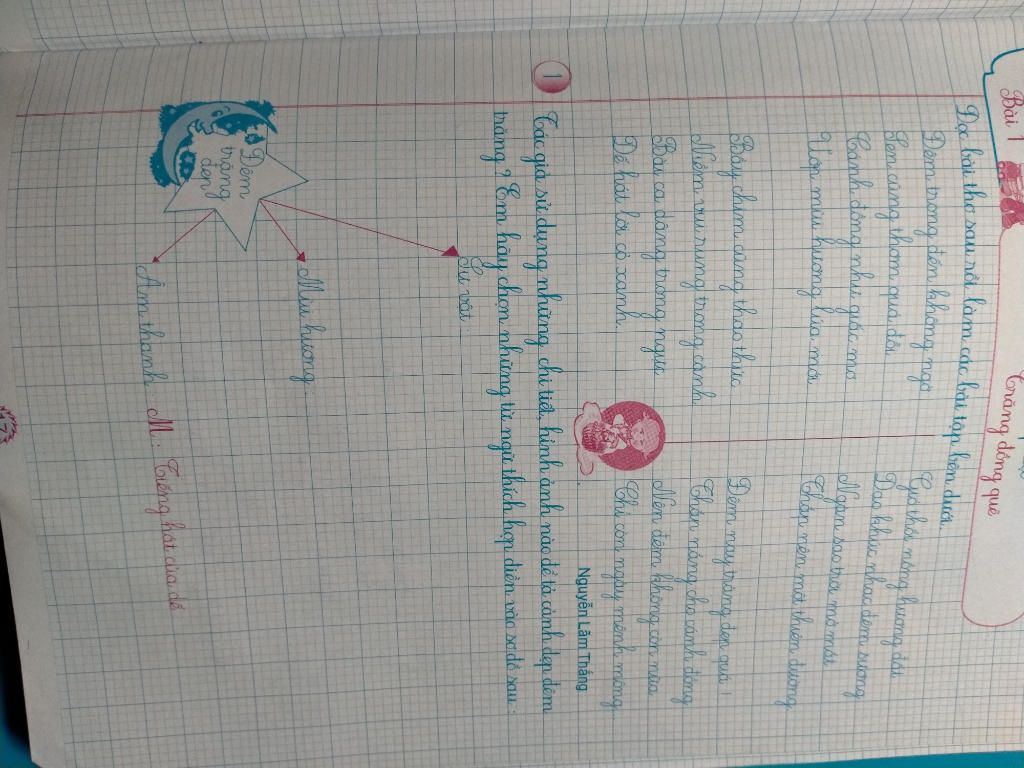 Bài 1
Trăng đồng quê
Đọc bài thơ sau rồi làm các bài tập bên dưới
Đêm trăng đến không ngờ
Sen càng thơm quá đỗi
Cánh đồng như giấc mơ
Ướp mùi hương lúa mới
Bầy chim cũng thao thức
Niềm vui rung trong cánh
Bài ca dâng trong ngực
Để hát lời cỏ xanh.
Gió thổi nồng hương đất
Dạo khúc nhạc đêm sương
Ngàn sao trời mở mắt
Thắp nên một thiên đường
Đêm nay trăng đẹp quá!
Thắp nắng cho cánh đồng
Nên đêm không còn nữa
Chỉ còn ngày mênh mông.
Nguyễn Lãm Thắng
1
Tác giả sử dụng những chi tiết, hình ảnh nào để tả cảnh đẹp đêm
trăng? Em hãy chọn những từ ngữ thích hợp điền vào sơ đồ sau:
Đêm
trăng
đẹp
Sự vật:
Mùi hương:
Âm thanh: M: Tiếng hát của dế
17